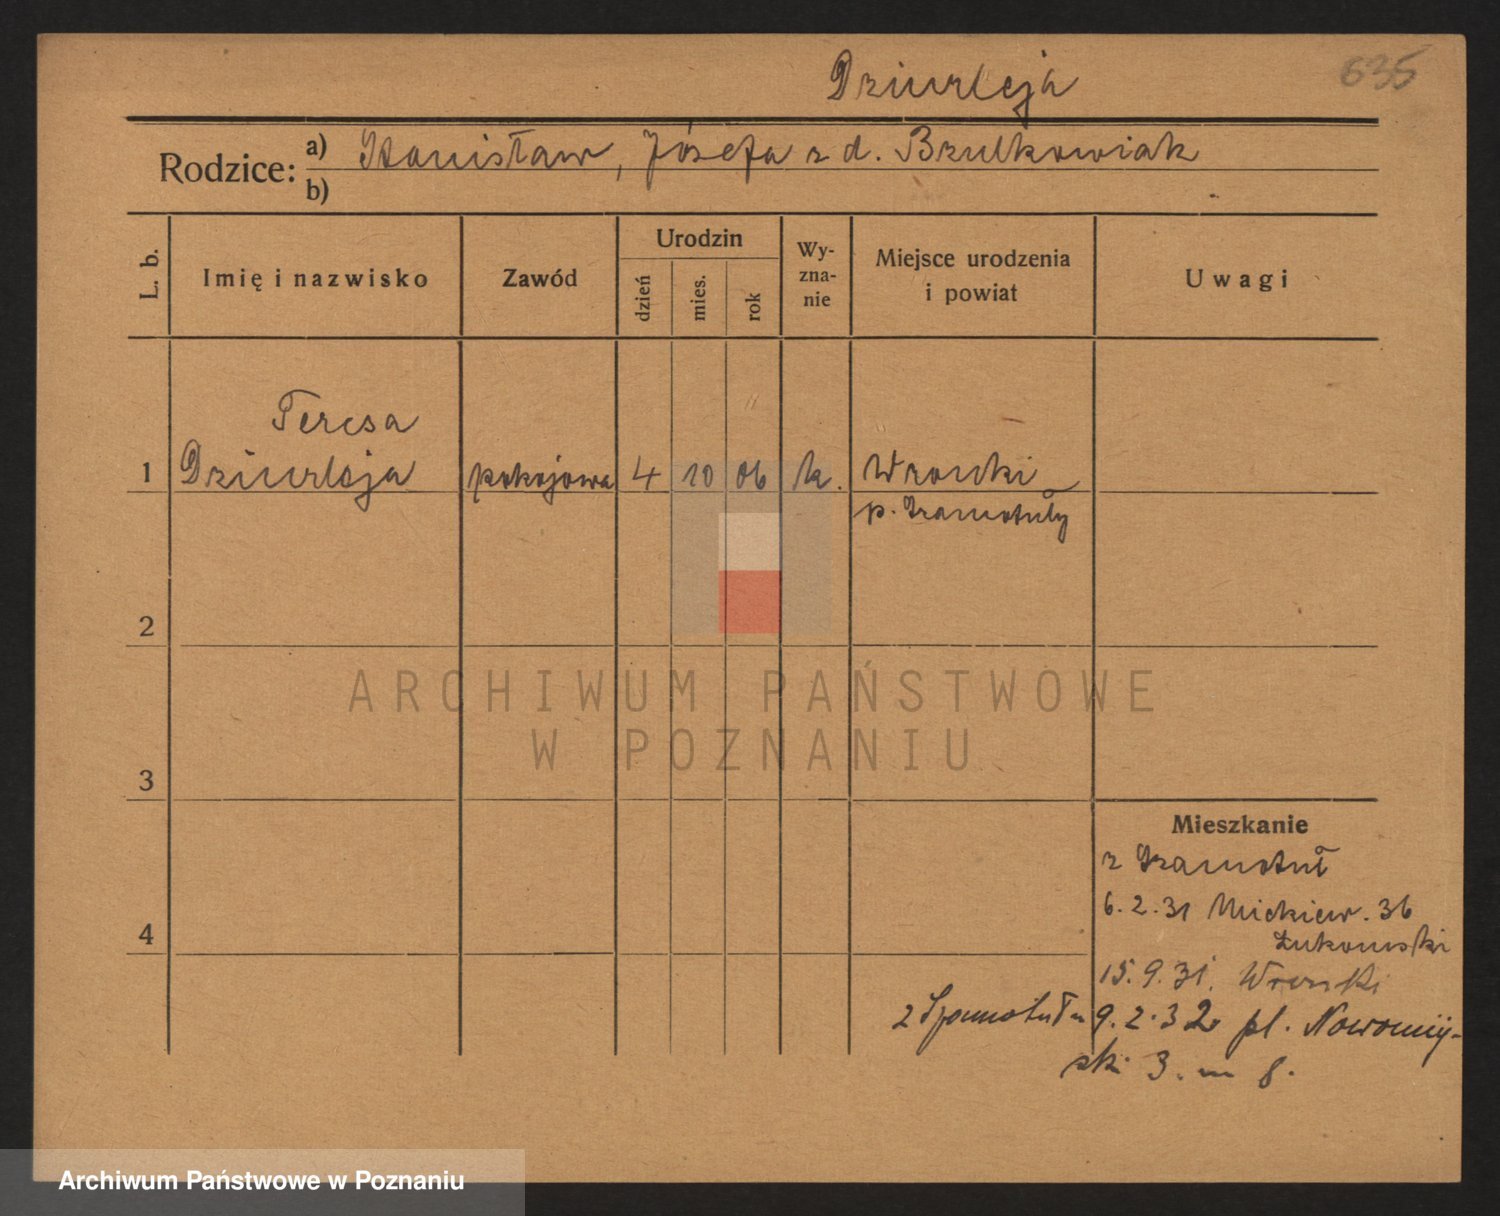 Dziurleja
635
Rodzice: a) Stanisław, Józefa z d. Brulkowiak
b)
L. b.
Imię i nazwisko
Zawód
Urodzin
dzień
mies.
rok
Wy-
zna-
nie
Miejsce urodzenia
i powiat
Uwagi
Teresa
1 Dziurleja pokojowa 4 10 06 k. Wronki
p. Szamotuły
2
3
4
Mieszkanie
z Szamotuł
6.2.31 Mickiew. 36
Łukomski
15.9.31. Wronki
z Szamotuł 9.2.32 pl. Nowomiej-
ski 3. m 8.
ARCHIWUM PAŃSTWOWE
W POZNANIU
Archiwum Państwowe w Poznaniu